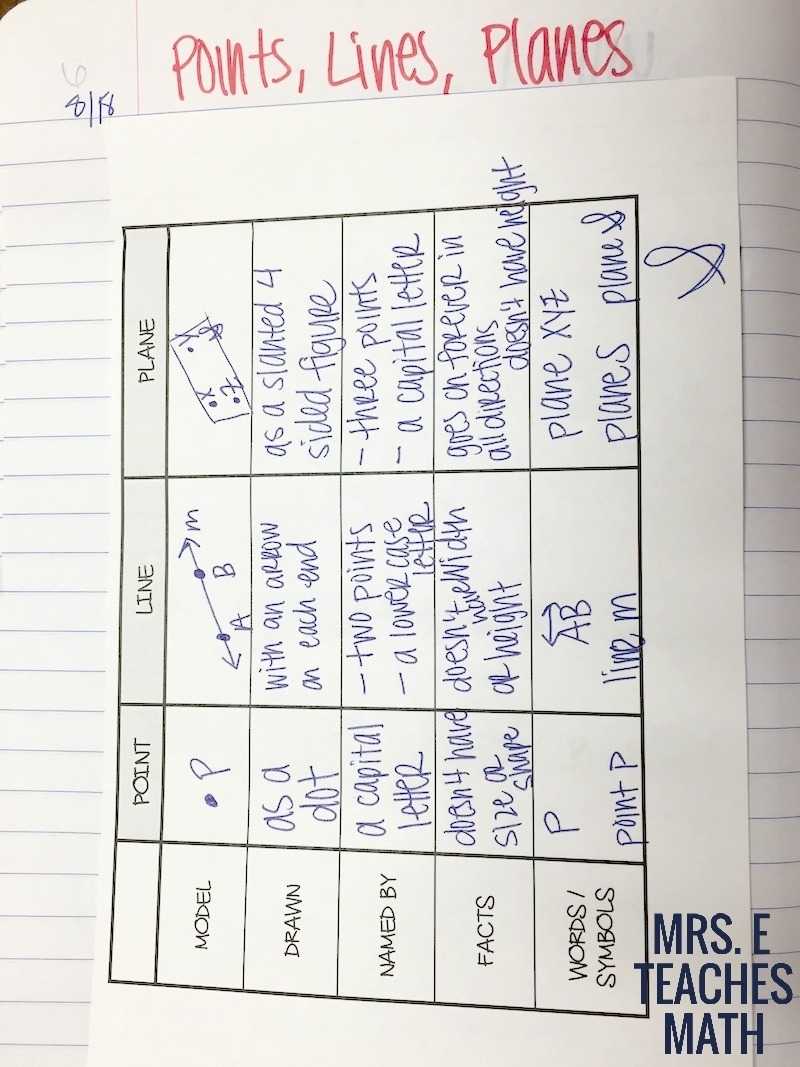 Points, Lines, Planes
8/18
POINT
LINE
PLANE
MODEL
P
A
B
m
X
Y
Z
DRAWN
as a
dot
with an arrow
on each end
as a slanted 4
sided figure
NAMED BY
a capital
letter
- two points
- a lower case
letter
- three points
- a capital letter
FACTS
doesn't have
size or
shape
doesn't have width
or height
goes on forever in
all directions
doesn't have height
WORDS /
SYMBOLS
P
point P
AB
line m
plane XYZ
plane S plane S
S
MRS. E
TEACHES
MATH